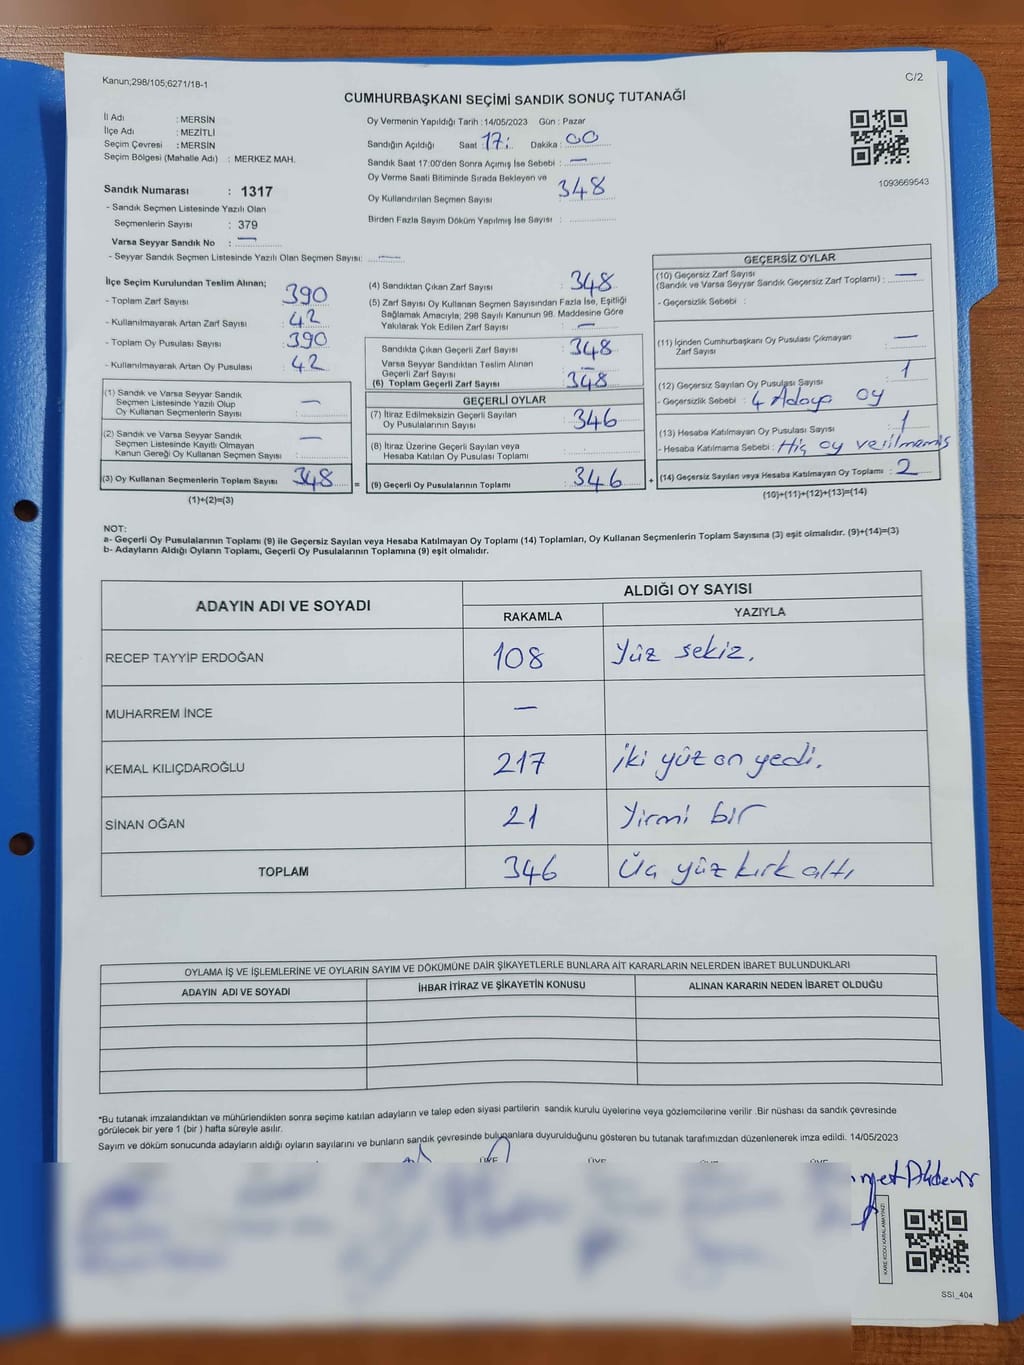 Kanun;298/105;6271/18-1
C/2
CUMHURBAŞKANI SEÇİMİ SANDIK SONUÇ TUTANAĞI
İl Adı : MERSİN
İlçe Adı : MEZİTLİ
Seçim Çevresi : MERSİN
Seçim Bölgesi (Mahalle Adı) : MERKEZ MAH.
Sandık Numarası : 1317
- Sandık Seçmen Listesinde Yazılı Olan
Seçmenlerin Sayısı : 379
Varsa Seyyar Sandık No : —
- Seyyar Sandık Seçmen Listesinde Yazılı Olan Seçmen Sayısı: —
Oy Vermenin Yapıldığı Tarih : 14/05/2023 Gün : Pazar
Sandığın Açıldığı Saat : 17: Dakika : 00
Sandık Saat 17:00'den Sonra Açımış İse Sebebi : —
Oy Verme Saati Bitiminde Sırada Bekleyen ve
Oy Kullandırılan Seçmen Sayısı : 348
Birden Fazla Sayım Döküm Yapılmış İse Sayısı :
1093669543
İlçe Seçim Kurulundan Teslim Alınan;
- Toplam Zarf Sayısı : 390
- Kullanılmayarak Artan Zarf Sayısı : 42
- Toplam Oy Pusulası Sayısı : 390
- Kullanılmayarak Artan Oy Pusulası : 42
(1) Sandık ve Varsa Seyyar Sandık
Seçmen Listesinde Yazılı Olup
Oy Kullanan Seçmenlerin Sayısı : —
(2) Sandık ve Varsa Seyyar Sandık
Seçmen Listesinde Kayıtlı Olmayan
Kanun Gereği Oy Kullanan Seçmen Sayısı : —
(3) Oy Kullanan Seçmenlerin Toplam Sayısı : 348
(1)+(2)=(3)
=
(4) Sandıktan Çıkan Zarf Sayısı : 348
(5) Zarf Sayısı Oy Kullanan Seçmen Sayısından Fazla İse, Eşitliği
Sağlamak Amacıyla; 298 Sayılı Kanunun 98. Maddesine Göre
Yakılarak Yok Edilen Zarf Sayısı : —
Sandıkta Çıkan Geçerli Zarf Sayısı : 348
Varsa Seyyar Sandıktan Teslim Alınan
Geçerli Zarf Sayısı : —
(6) Toplam Geçerli Zarf Sayısı : 348
GEÇERLİ OYLAR
(7) İtiraz Edilmeksizin Geçerli Sayılan
Oy Pusulalarının Sayısı : 346
(8) İtiraz Üzerine Geçerli Sayılan veya
Hesaba Katılan Oy Pusulası Toplamı :
(9) Geçerli Oy Pusulalarının Toplamı : 346
+
GEÇERSİZ OYLAR
(10) Geçersiz Zarf Sayısı
(Sandık ve Varsa Seyyar Sandık Geçersiz Zarf Toplamı) : —
- Geçersizlik Sebebi :
(11) İçinden Cumhurbaşkanı Oy Pusulası Çıkmayan
Zarf Sayısı : —
(12) Geçersiz Sayılan Oy Pusulası Sayısı : 1
- Geçersizlik Sebebi : 4 Adaya oy
(13) Hesaba Katılmayan Oy Pusulası Sayısı : 1
- Hesaba Katılmama Sebebi : Hiç oy verilmemiş
(14) Geçersiz Sayılan veya Hesaba Katılmayan Oy Toplamı : 2
(10)+(11)+(12)+(13)=(14)
NOT:
a- Geçerli Oy Pusulalarının Toplamı (9) ile Geçersiz Sayılan veya Hesaba Katılmayan Oy Toplamı (14) Toplamları, Oy Kullanan Seçmenlerin Toplam Sayısına (3) eşit olmalıdır. (9)+(14)=(3)
b- Adayların Aldığı Oyların Toplamı, Geçerli Oy Pusulalarının Toplamına (9) eşit olmalıdır.
ADAYIN ADI VE SOYADI
ALDIĞI OY SAYISI
RAKAMLA YAZIYLA
RECEP TAYYİP ERDOĞAN 108 Yüz sekiz.
MUHARREM İNCE —
KEMAL KILIÇDAROĞLU 217 İki yüz on yedi.
SİNAN OĞAN 21 Yirmi bir
TOPLAM 346 Üç yüz kırk altı
OYLAMA İŞ VE İŞLEMLERİNE VE OYLARIN SAYIM VE DÖKÜMÜNE DAİR ŞİKAYETLERLE BUNLARA AİT KARARLARIN NELERDEN İBARET BULUNDUKLARI
ADAYIN ADI VE SOYADI İHBAR İTİRAZ VE ŞİKAYETİN KONUSU ALINAN KARARIN NEDEN İBARET OLDUĞU
*Bu tutanak imzalandıktan ve mühürlendikten sonra seçime katılan adayların ve talep eden siyasi partilerin sandık kurulu üyelerine veya gözlemcilerine verilir .Bir nüshası da sandık çevresinde
görülecek bir yere 1 (bir ) hafta süreyle asılır.
Sayım ve döküm sonucunda adayların aldığı oyların sayılarını ve bunların sandık çevresinde bulunanlara duyurulduğunu gösteren bu tutanak tarafımızdan düzenlenerek imza edildi. 14/05/2023
ÜYE ÜYE ÜYE ÜYE
KARE KODU KARALAMAYINIZ!
SSI_404